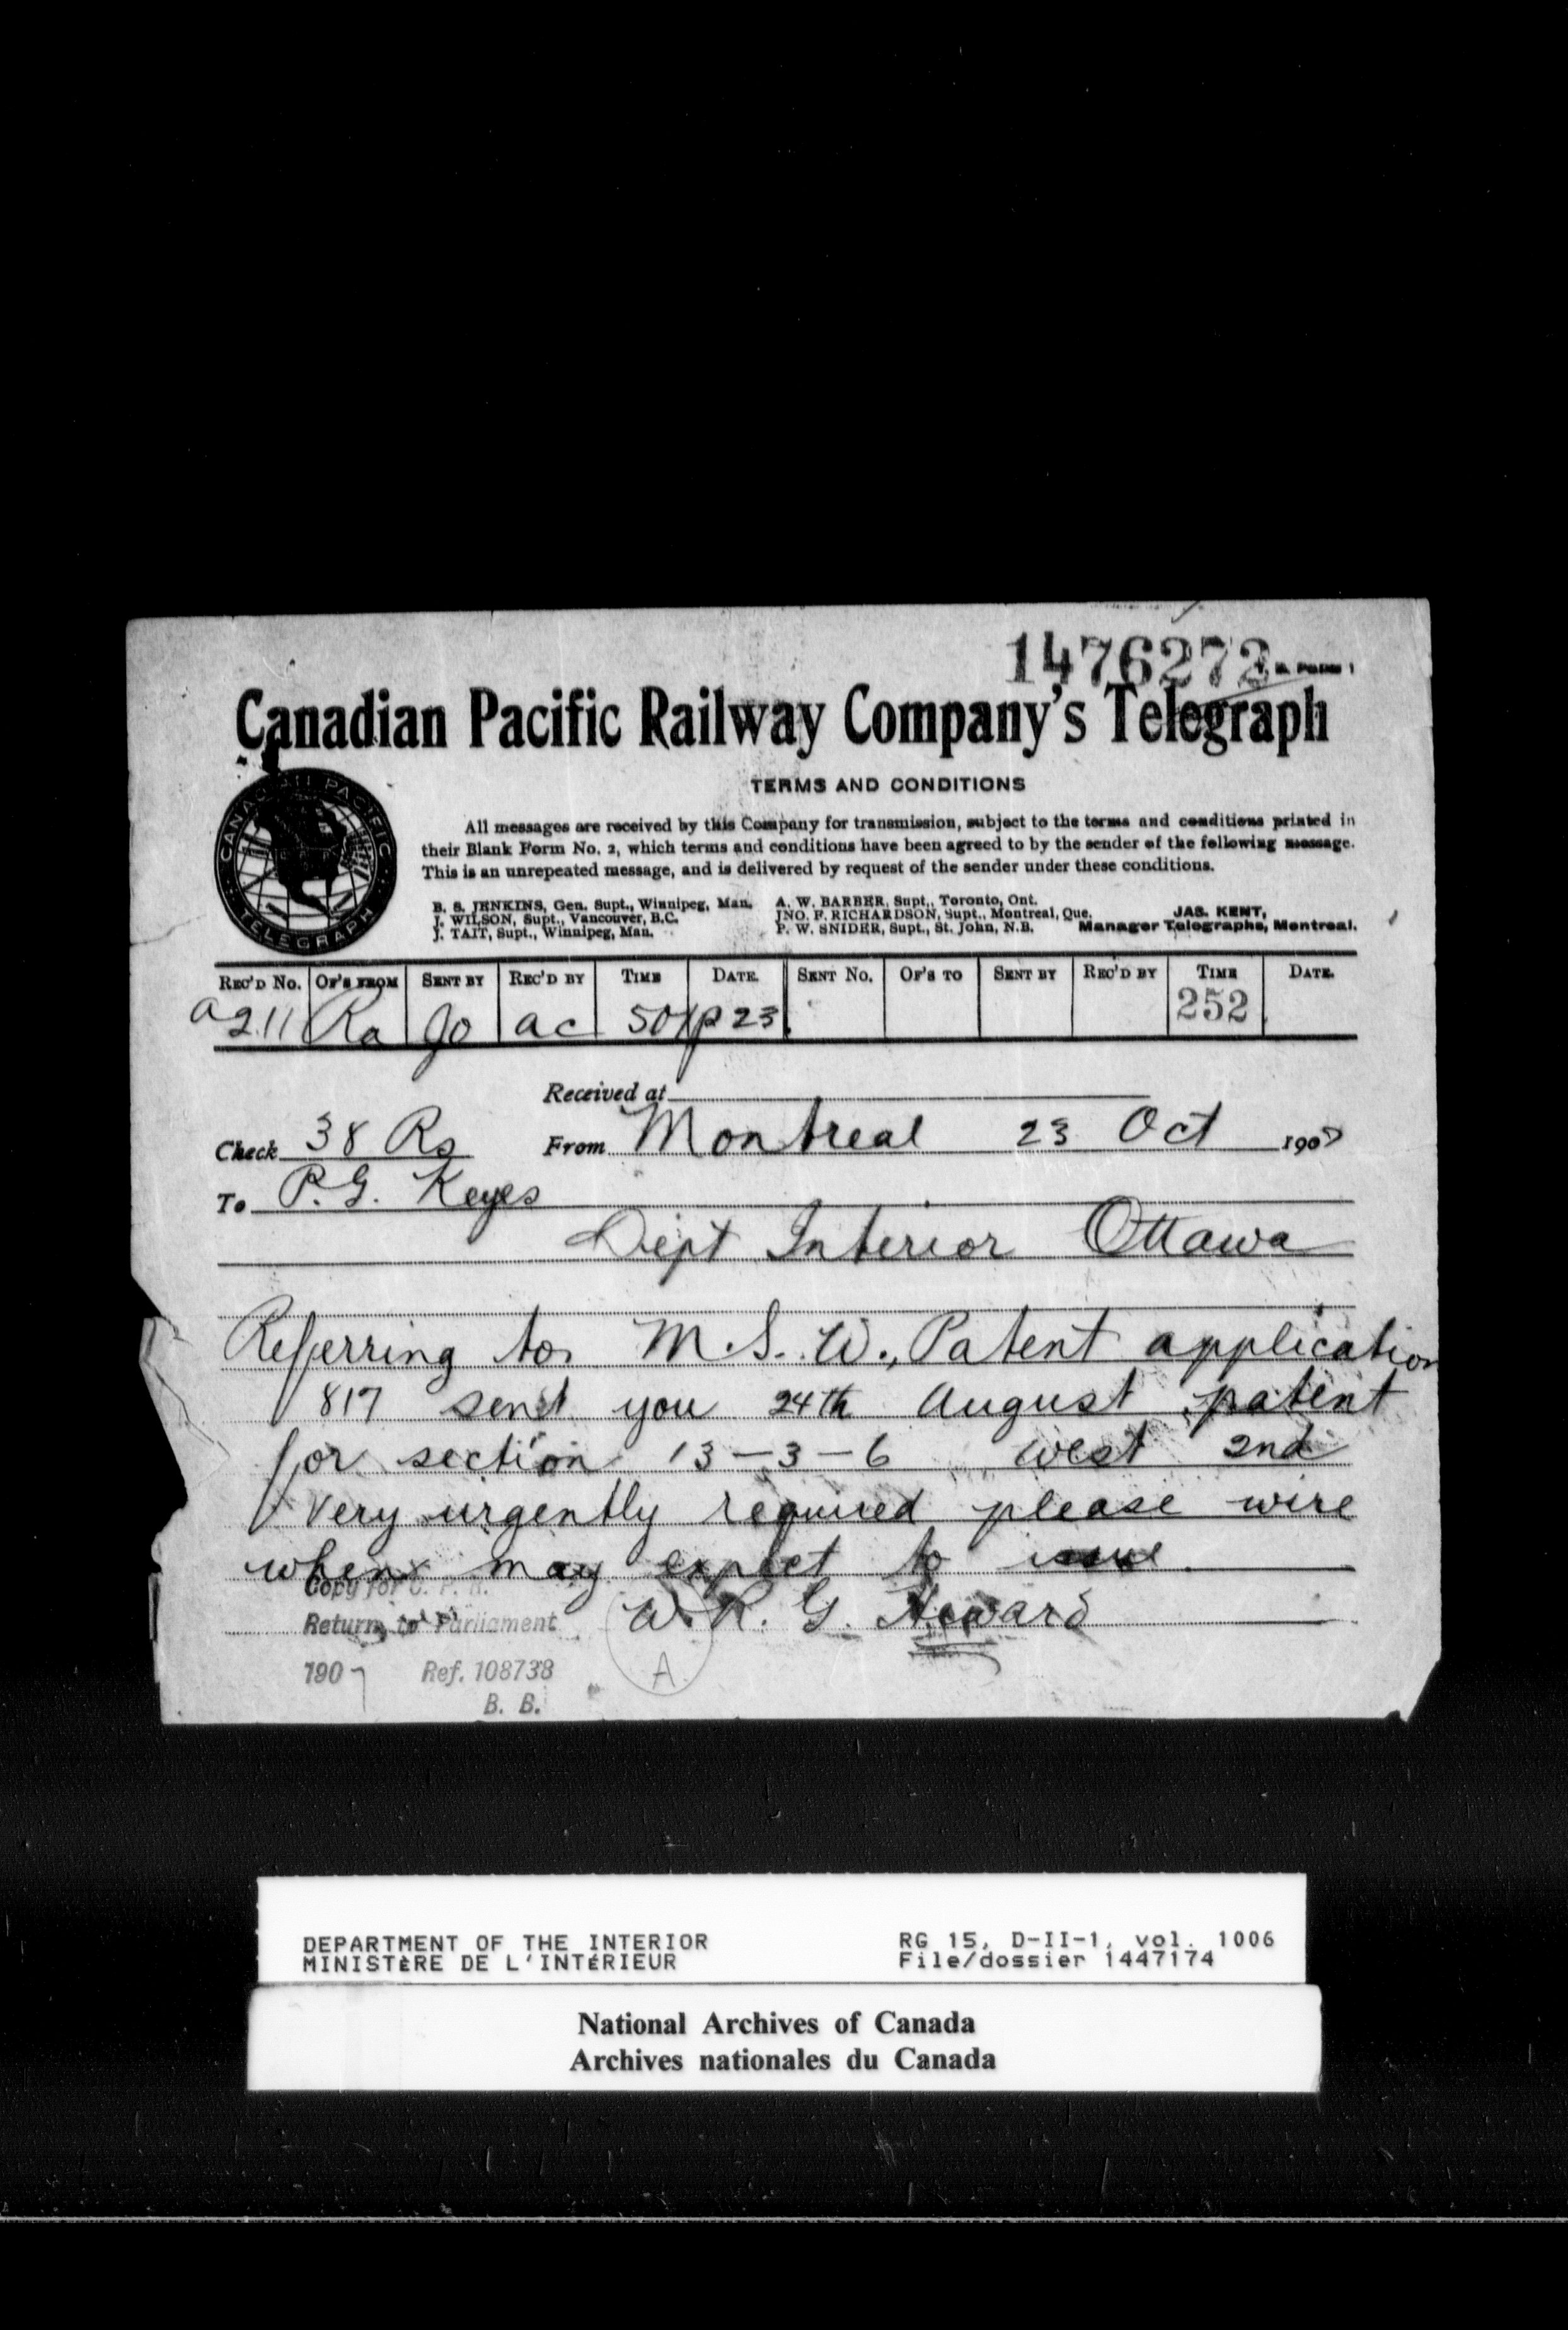 1476272
Canadian Pacific Railway Company's Telegraph
CANADIAN PACIFIC
TELEGRAPH
TERMS AND CONDITIONS
All messages are received by this Company for transmission, subject to the terms and conditions printed in
their Blank Form No. 2, which terms and conditions have been agreed to by the sender of the following message.
This is an unrepeated message, and is delivered by request of the sender under these conditions.
B. S. JENKINS, Gen. Supt., Winnipeg, Man. A. W. BARBER, Supt., Toronto, Ont.
J. WILSON, Supt., Vancouver, B.C. JNO. F. RICHARDSON, Supt., Montreal, Que. JAS. KENT,
J. TAIT, Supt., Winnipeg, Man. P. W. SNIDER, Supt., St. John, N.B. Manager Telegraphs, Montreal.
REC'D No. OF'S FROM SENT BY REC'D BY TIME DATE SENT No. OF'S TO SENT BY REC'D BY TIME DATE
a 211 Ra Jo ac 501p 23 252
Received at
Check 38 Ra From Montreal 23 Oct 190
To P. G. Keyes
Dept Interior Ottawa
Referring to M. S. W., Patent application
817 send you 24th August patent
for section 13-3-6 west 2nd
very urgently required please wire
when may expect to issue.
W. R. G. Heward
Copy for C. P. R.
Return to Parliament
1907 Ref. 108738
B. B.
A
DEPARTMENT OF THE INTERIOR RG 15, D-II-1, vol. 1006
MINISTÈRE DE L'INTÉRIEUR File/dossier 1447174
National Archives of Canada
Archives nationales du Canada